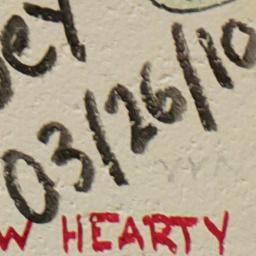 ey
03/26/10
W HEARTY